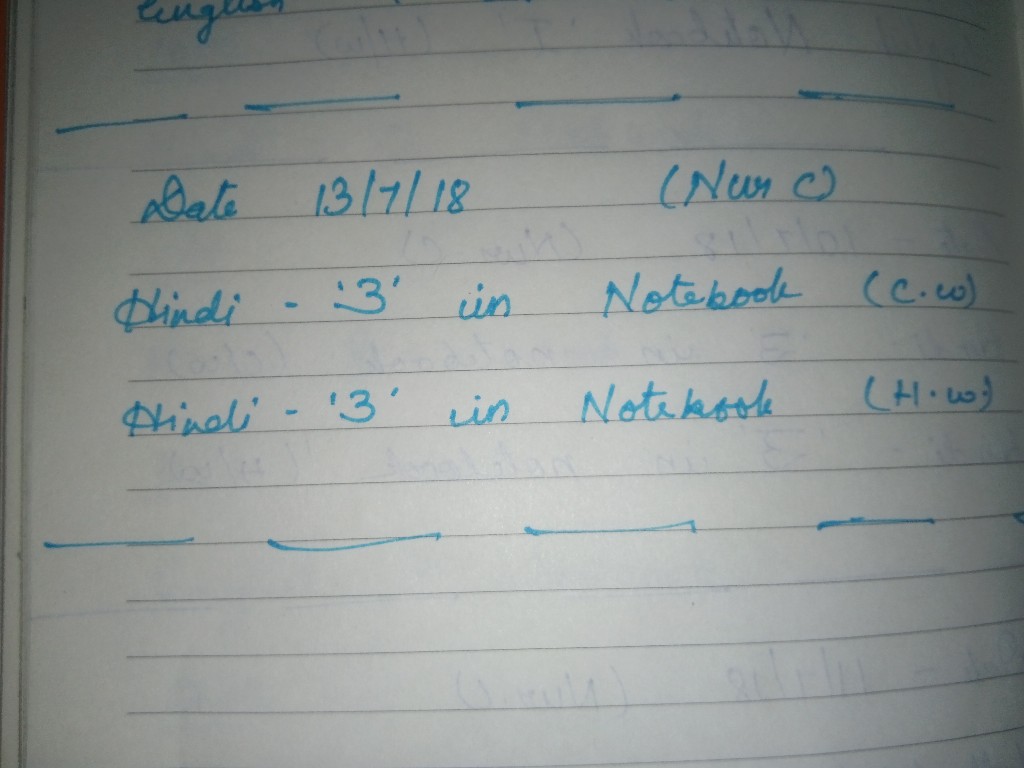 English
Date 13/7/18 (Nur C)
Hindi - '3' in Notebook (C.W)
Hindi - '3' in Notebook (H.W)